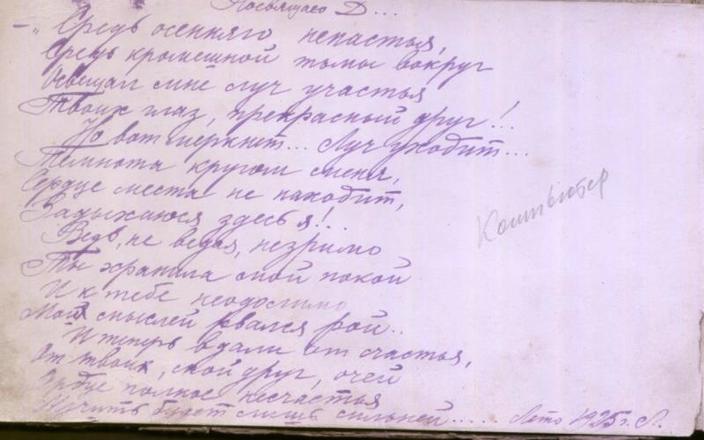 Посвящаю Д...
— „Средь осенняго ненастья,
Средь кромешной тьмы вокруг
Освещал мне луч участья
Твоих глаз, прекрасный друг!..
Но вот меркнет... Луч уходит...
Темнота кругом меня,
Сердце места не находит,
Задыхаюся здесь я!..
Ведь, не ведая, незримо
Ты хранила мой покой
И к тебе неодолимо
Мой мыслей рвался рой..
И теперь вдали от счастья,
От твоих, мой друг, очей
Сердце полное несчастья
будет лишь сильней..... Лето 1925 г. Л.
Компьютер